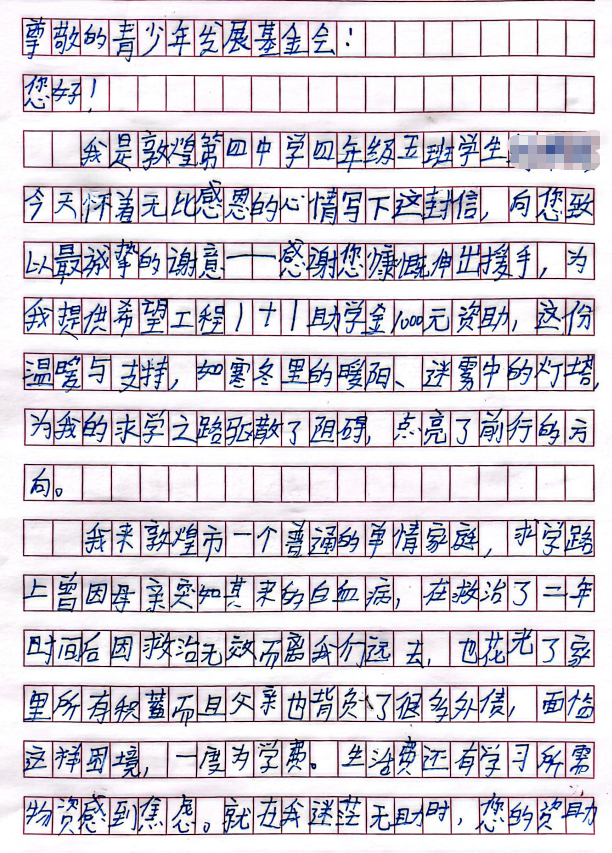 尊敬的青少年发展基金会！
您好！
我是敦煌第四中学四年级五班学生
今天怀着无比感恩的心情写下这封信，向您致
以最诚挚的谢意——感谢您慷慨伸出援手，为
我提供希望工程1+1助学金1000元资助，这份
温暖与支持，如寒冬里的暖阳、迷雾中的灯塔，
为我的求学之路驱散了阻碍，点亮了前行的方
向。
我来敦煌市一个普通的单情家庭，求学路
上曾因母亲突如其来的白血病，在救治了二年
时间后因救治无效而离我们远去，也花光了家
里所有积蓄而且父亲也背负了很多外债，面临
这样困境，一度为学费。生活费还有学习所需
物资感到焦虑。就在我迷茫无助时，您的资助